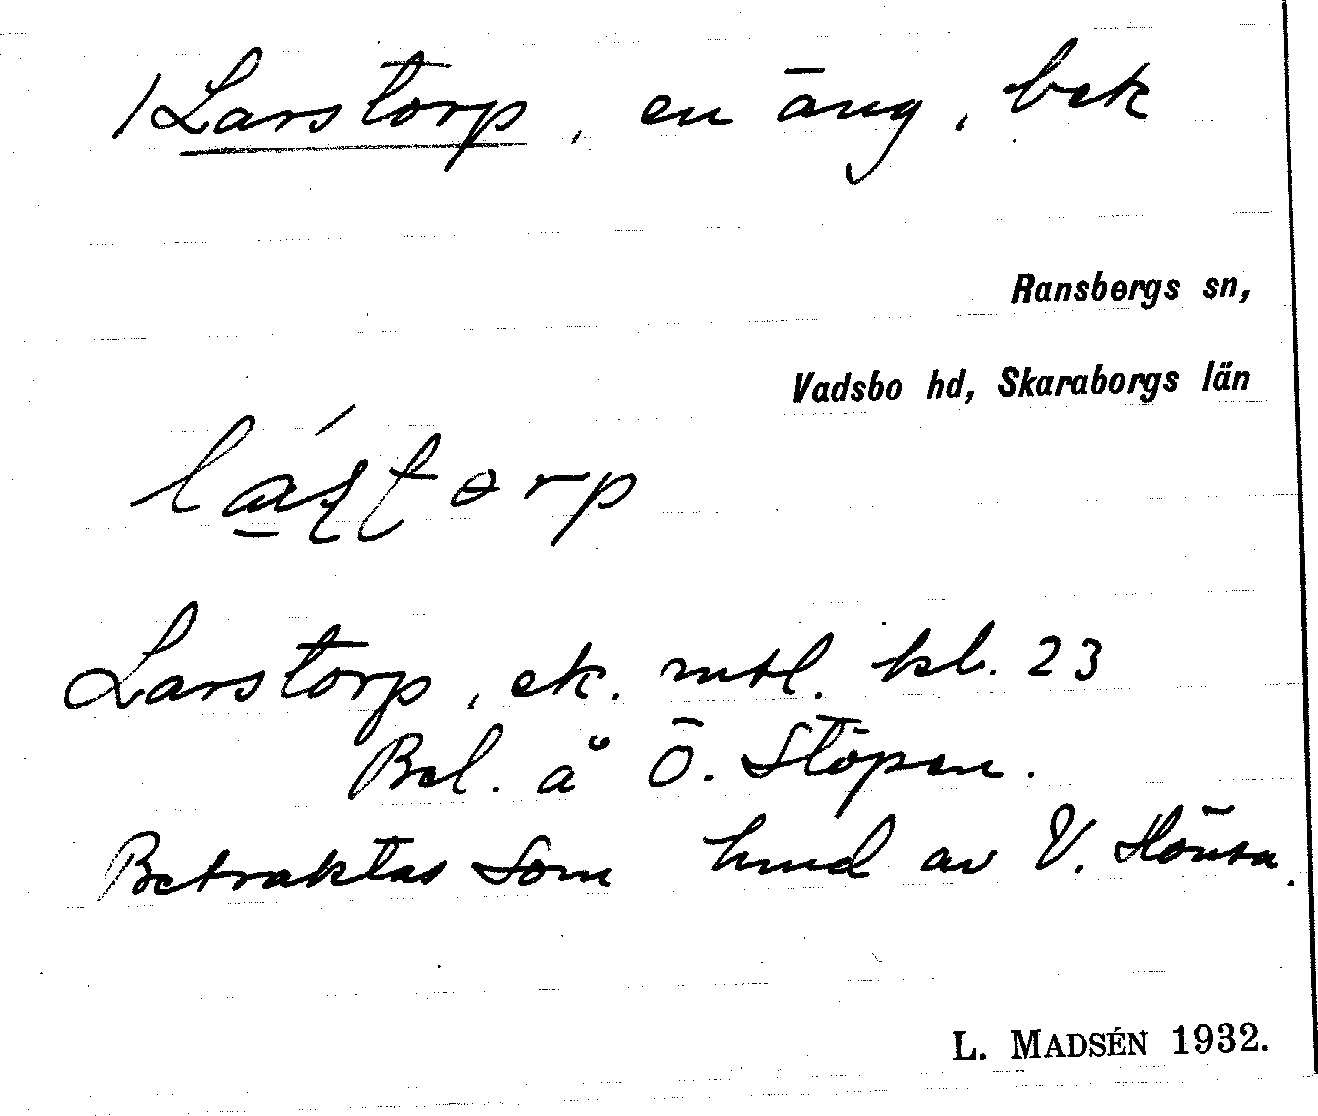 1 Larstorp, en äng, bek
Ransbergs sn,
Vadsbo hd, Skaraborgs län
Larstorp, ek. mtl. kl. 23
Bel. å Ö. Stöpen.
Betraktas som hmd av V. Hönsa.
L. MADSÉN 1932.